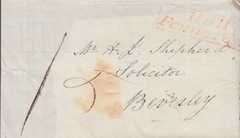 Hull
Penny Post
Mr. H. J. Shepherd
Solicitor
Beverley